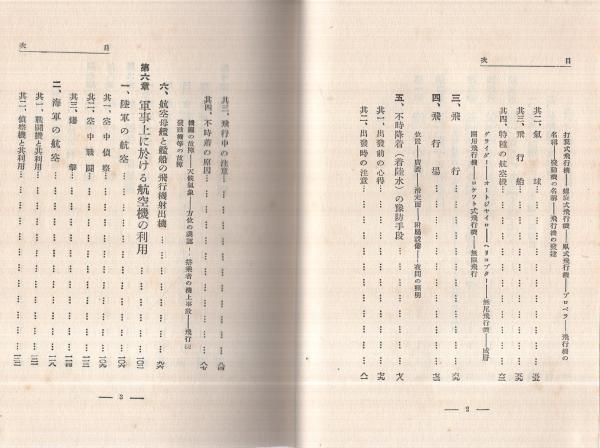 目次
打葉式飛行機――螺旋式飛行機――凧式飛行機――プロペラ――飛行機の
名稱――發動機の名稱――飛行機の發達
其二、氣球
其三、飛行船
其四、特種の航空機
グライダー――オートジヤイロ――ヘリコプター――無尾飛行機――成層
圏用飛行機――ロケツト式飛行機――無限飛行
三、飛行
四、飛行場
位置――廣袤――滑走面――附屬設備――夜間の照明
五、不時降着(着陸水)の豫防手段
其一、出發前の心得
其二、出發時の注意
― 2 ―
目次
其三、飛行中の注意
其四、不時着の原因
機關の故障――天候氣象――方位の誤認――搭乘者の機上事故――飛行
發動機等の故障
六、航空母艦と艦船の飛行機射出機
第六章 軍事上に於ける航空機の利用
一、陸軍の航空
其一、空中偵察
其二、空中戰鬪
其三、爆擊
二、海軍の航空
其一、戰鬪機と其利用
其二、偵察機と其利用
― 3 ―